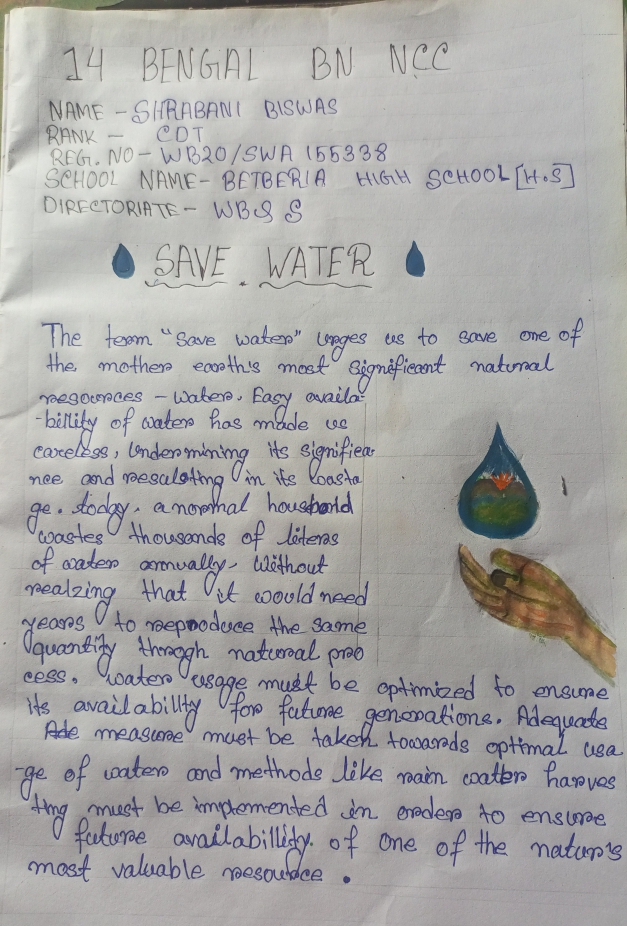 14 BENGAL BN NCC
NAME - SHRABANI BISWAS
RANK - CDT
REG. NO - WB20/SWA 155338
SCHOOL NAME - BETBERIA HIGH SCHOOL [H.S]
DIRECTORIATE - WB&S
SAVE . WATER
The term "Save water" urges us to save one of
the mother earth's most significant natural
resources - water. Easy availa-
-bility of water has made us
careless, Undermining its significa
nce and resulating in its Loasta
ge. today. a normal houshold
wastes thousands of liters
of water annually. Without
realzing that it would need
years to reproduce the same
quantity throgh natural pro
cess. water usage must be optimized to ensure
its availabillty for future generations. Adequate
Ade measure must be taken towards optimal usa
-ge of water and methods like rain watter harves
ting must be implemented in order to ensure
future availabillity. of one of the natur's
most valuable resource .